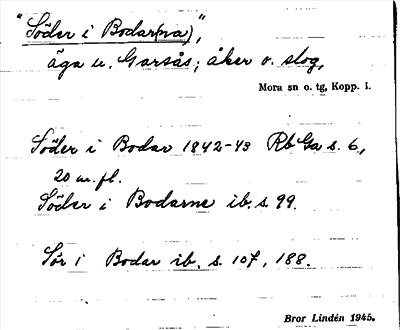 "Söder i Bodar(na)",
äga u. Garsås; åker o. slog,
Mora sn o. tg, Kopp. l.
Söder i Bodar 1942-43 Rb Ga s. 6,
20 m. fl.
Söder i Bodarne ib. s 99.
Sör i Bodar ib. s. 107, 188.
Bror Lindén 1945.